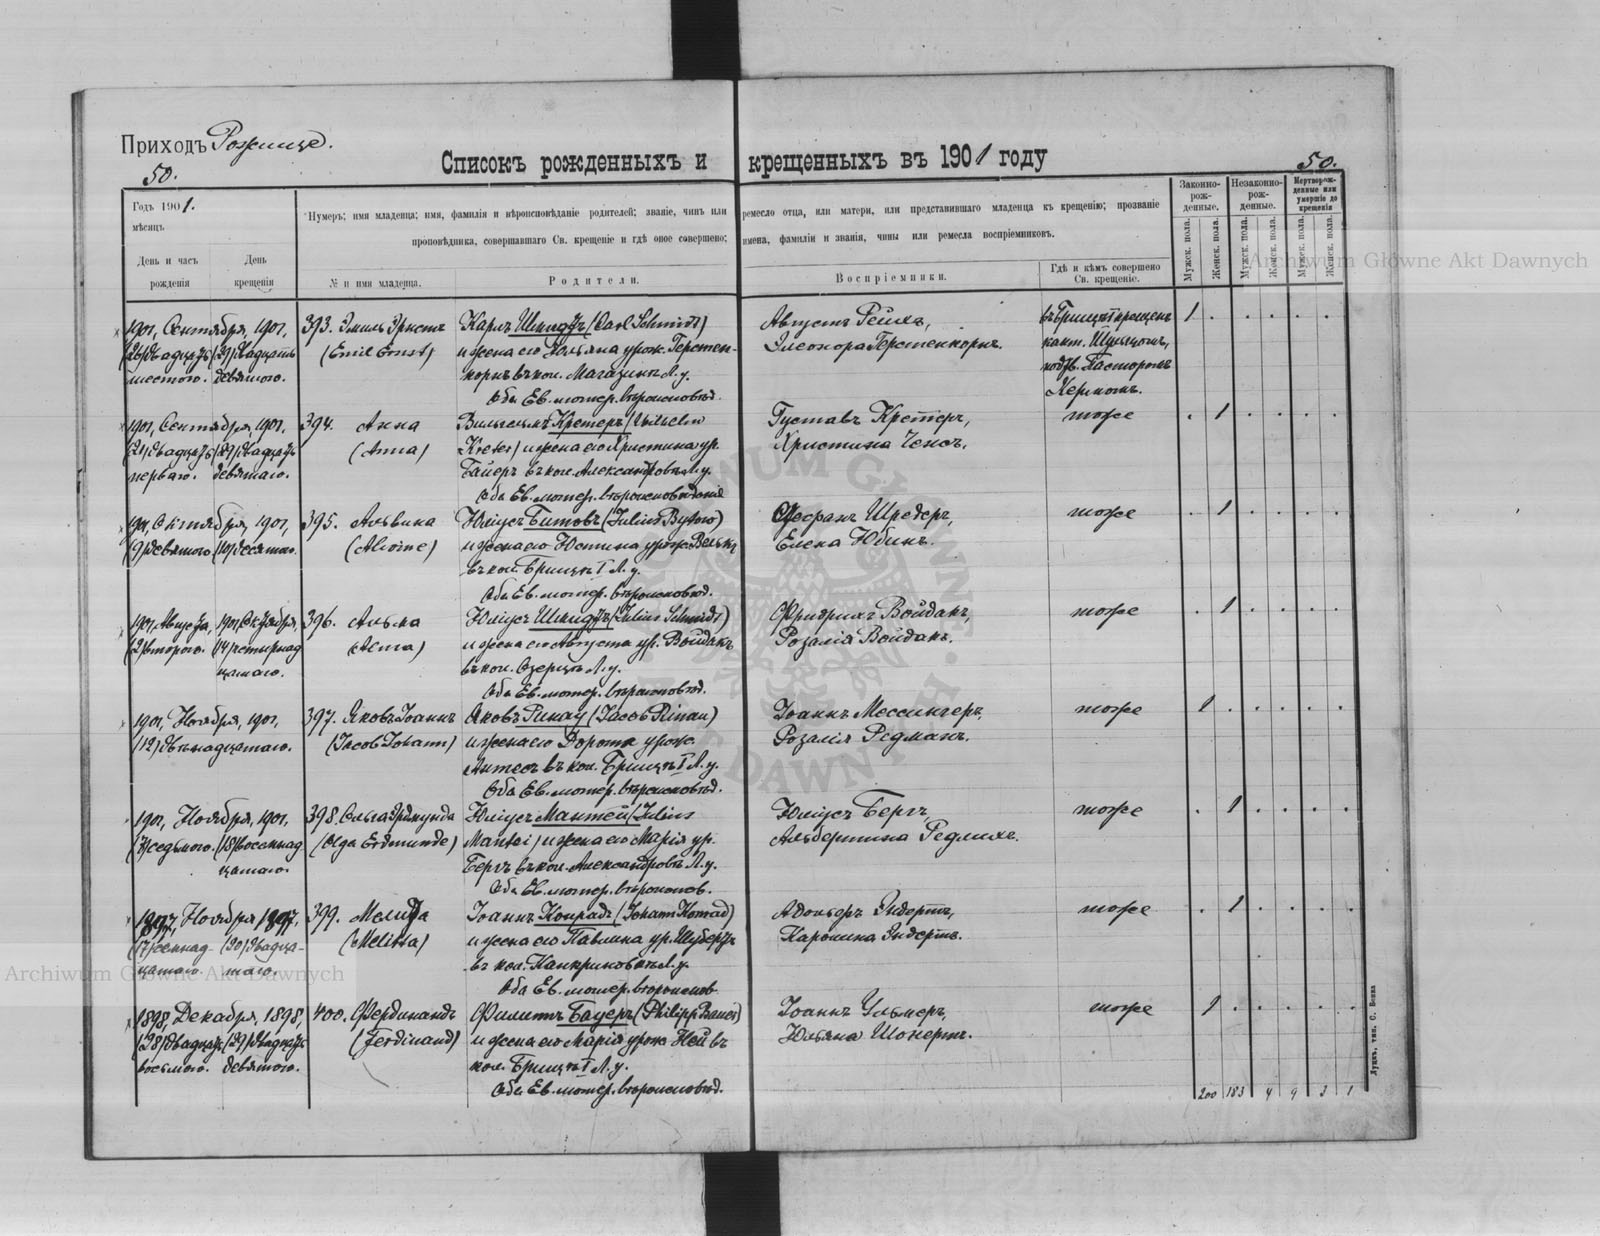 Приходъ Рожище.
50.
Списокъ рожденныхъ и крещенныхъ въ 1901 году
50.
Годъ 1901.
мѣсяцъ
День и часъ рожденія
День крещенія
Нумеръ; имя младенца; имя, фамилія и вѣроисповѣданіе родителей; званіе, чинъ или ремесло отца, или матери, или представившаго младенца къ крещенію; прозваніе
проповѣдника, совершавшаго Св. крещеніе и гдѣ оное совершено; имена, фамиліи и званія, чины или ремесла воспріемниковъ.
№ и имя младенца.
Родители.
Воспріемники.
Гдѣ и кѣмъ совершено Св. крещеніе.
Законно-рож-денные.
Незаконно-рож-денные.
Мертворож-денные или умершіе до крещенія
Мужск. пола.
Женск. пола.
Мужск. пола.
Женск. пола.
Мужск. пола.
Женск. пола.
1901, Сентября, 1901, 393. Эмиль Эрнстъ Карлъ Шмидтъ (Carl Schmidt) Августъ Рейхъ, 1
(26) двадцать (29) двадцать (Emil Ernst) и жена его Юльяна урож. Герстен- Элеонора Герстенкорнъ. кант. Шульцомъ,
шестого. девятого. корнъ въ кол. Магазинъ Л. у. подтв. Пасторомъ
Оба Ев. лютер. вѣроисповѣд. Кермомъ.
1901, Сентября, 1901, 394. Анна Вильгельмъ Кретеръ (Wilhelm Густавъ Кретеръ, тоже 1
(21) двадцать (29) двадцать (Anna) Kreter) и жена его Христина ур.
перваго. девятаго. Гайеръ въ кол. Александровкѣ Л. у.
Оба Ев. лютер. вѣроисповѣданія
1901, Октября, 1901, 395. Альвина Юліусъ Битовъ (Julius Bytow) Шредеръ, тоже 1
(9) девятого (10) десятаго. (Alvine) и жена его Юстина урож. Велькъ Елена Юбинъ.
въ кол. Брищъ I Л. у.
Оба Ев. лютер. вѣроисповѣд.
1901, Августа, 1901 Октября, 396. Альма Юліусъ Шмидтъ (Julius Schmidt) Фридрихъ Войданъ, тоже 1
(2) второго. (14) четырнад (Alma) и жена его Августа ур. Войданъ Розалія Войданъ.
цатаго. въ кол. Озерцѣ Л. у.
Оба Ев. лютер. вѣроисповѣд.
1901, Ноября, 1901, 397. Яковъ Іоаннъ Яковъ Ринау (Jacob Rinau) Іоаннъ Мессингеръ, тоже 1
(12) двѣнадцатаго. (Jacob Johann) и жена его Дорота урож. Розалія Редманъ.
въ кол. Брищъ I Л. у.
Оба Ев. лютер. вѣроисповѣд.
1901, Ноября, 1901, 398. Ольга Эрдмунда Юліусъ Мантей (Julius Юліусъ Бергъ, тоже 1
(7) седьмого. (18) восемнад (Olga Erdmunde) Mantei) и жена его Марія ур. Альбертина Редлихъ.
цатаго. Бергъ въ кол. Александровкѣ Л. у.
Оба Ев. лютер. вѣроисповѣд.
1897, Ноября 1897, 399. Мелитта Іоаннъ Конрадъ (Johann Konrad) Адольфъ Эндертъ, тоже 1
(17) семнад- (20) двадца- (Melitta) и жена его Павлина ур. Шубертъ Каролина Эндертъ.
цатаго таго. въ кол. Канкриновкѣ Л. у.
Оба Ев. лютер. вѣроисповѣд.
1898, Декабря, 1898, 400. Фердинандъ Филиппъ Бауеръ (Philipp Bauer) Іоаннъ Ульмеръ, тоже 1
(28) двадцать (29) двадцать (Ferdinand) и жена его Марія урож. Ней въ Юльяна Шонертъ.
восьмого. девятого. кол. Брищъ I Л. у.
Оба Ев. лютер. вѣроисповѣд.
200 183 4 9 3 1
Луцкъ, тип. С. Бонка
Archiwum Główne Akt Dawnych
Archiwum Główne Akt Dawnych
ARCHIWUM GŁÓWNE AKT DAWNYCH